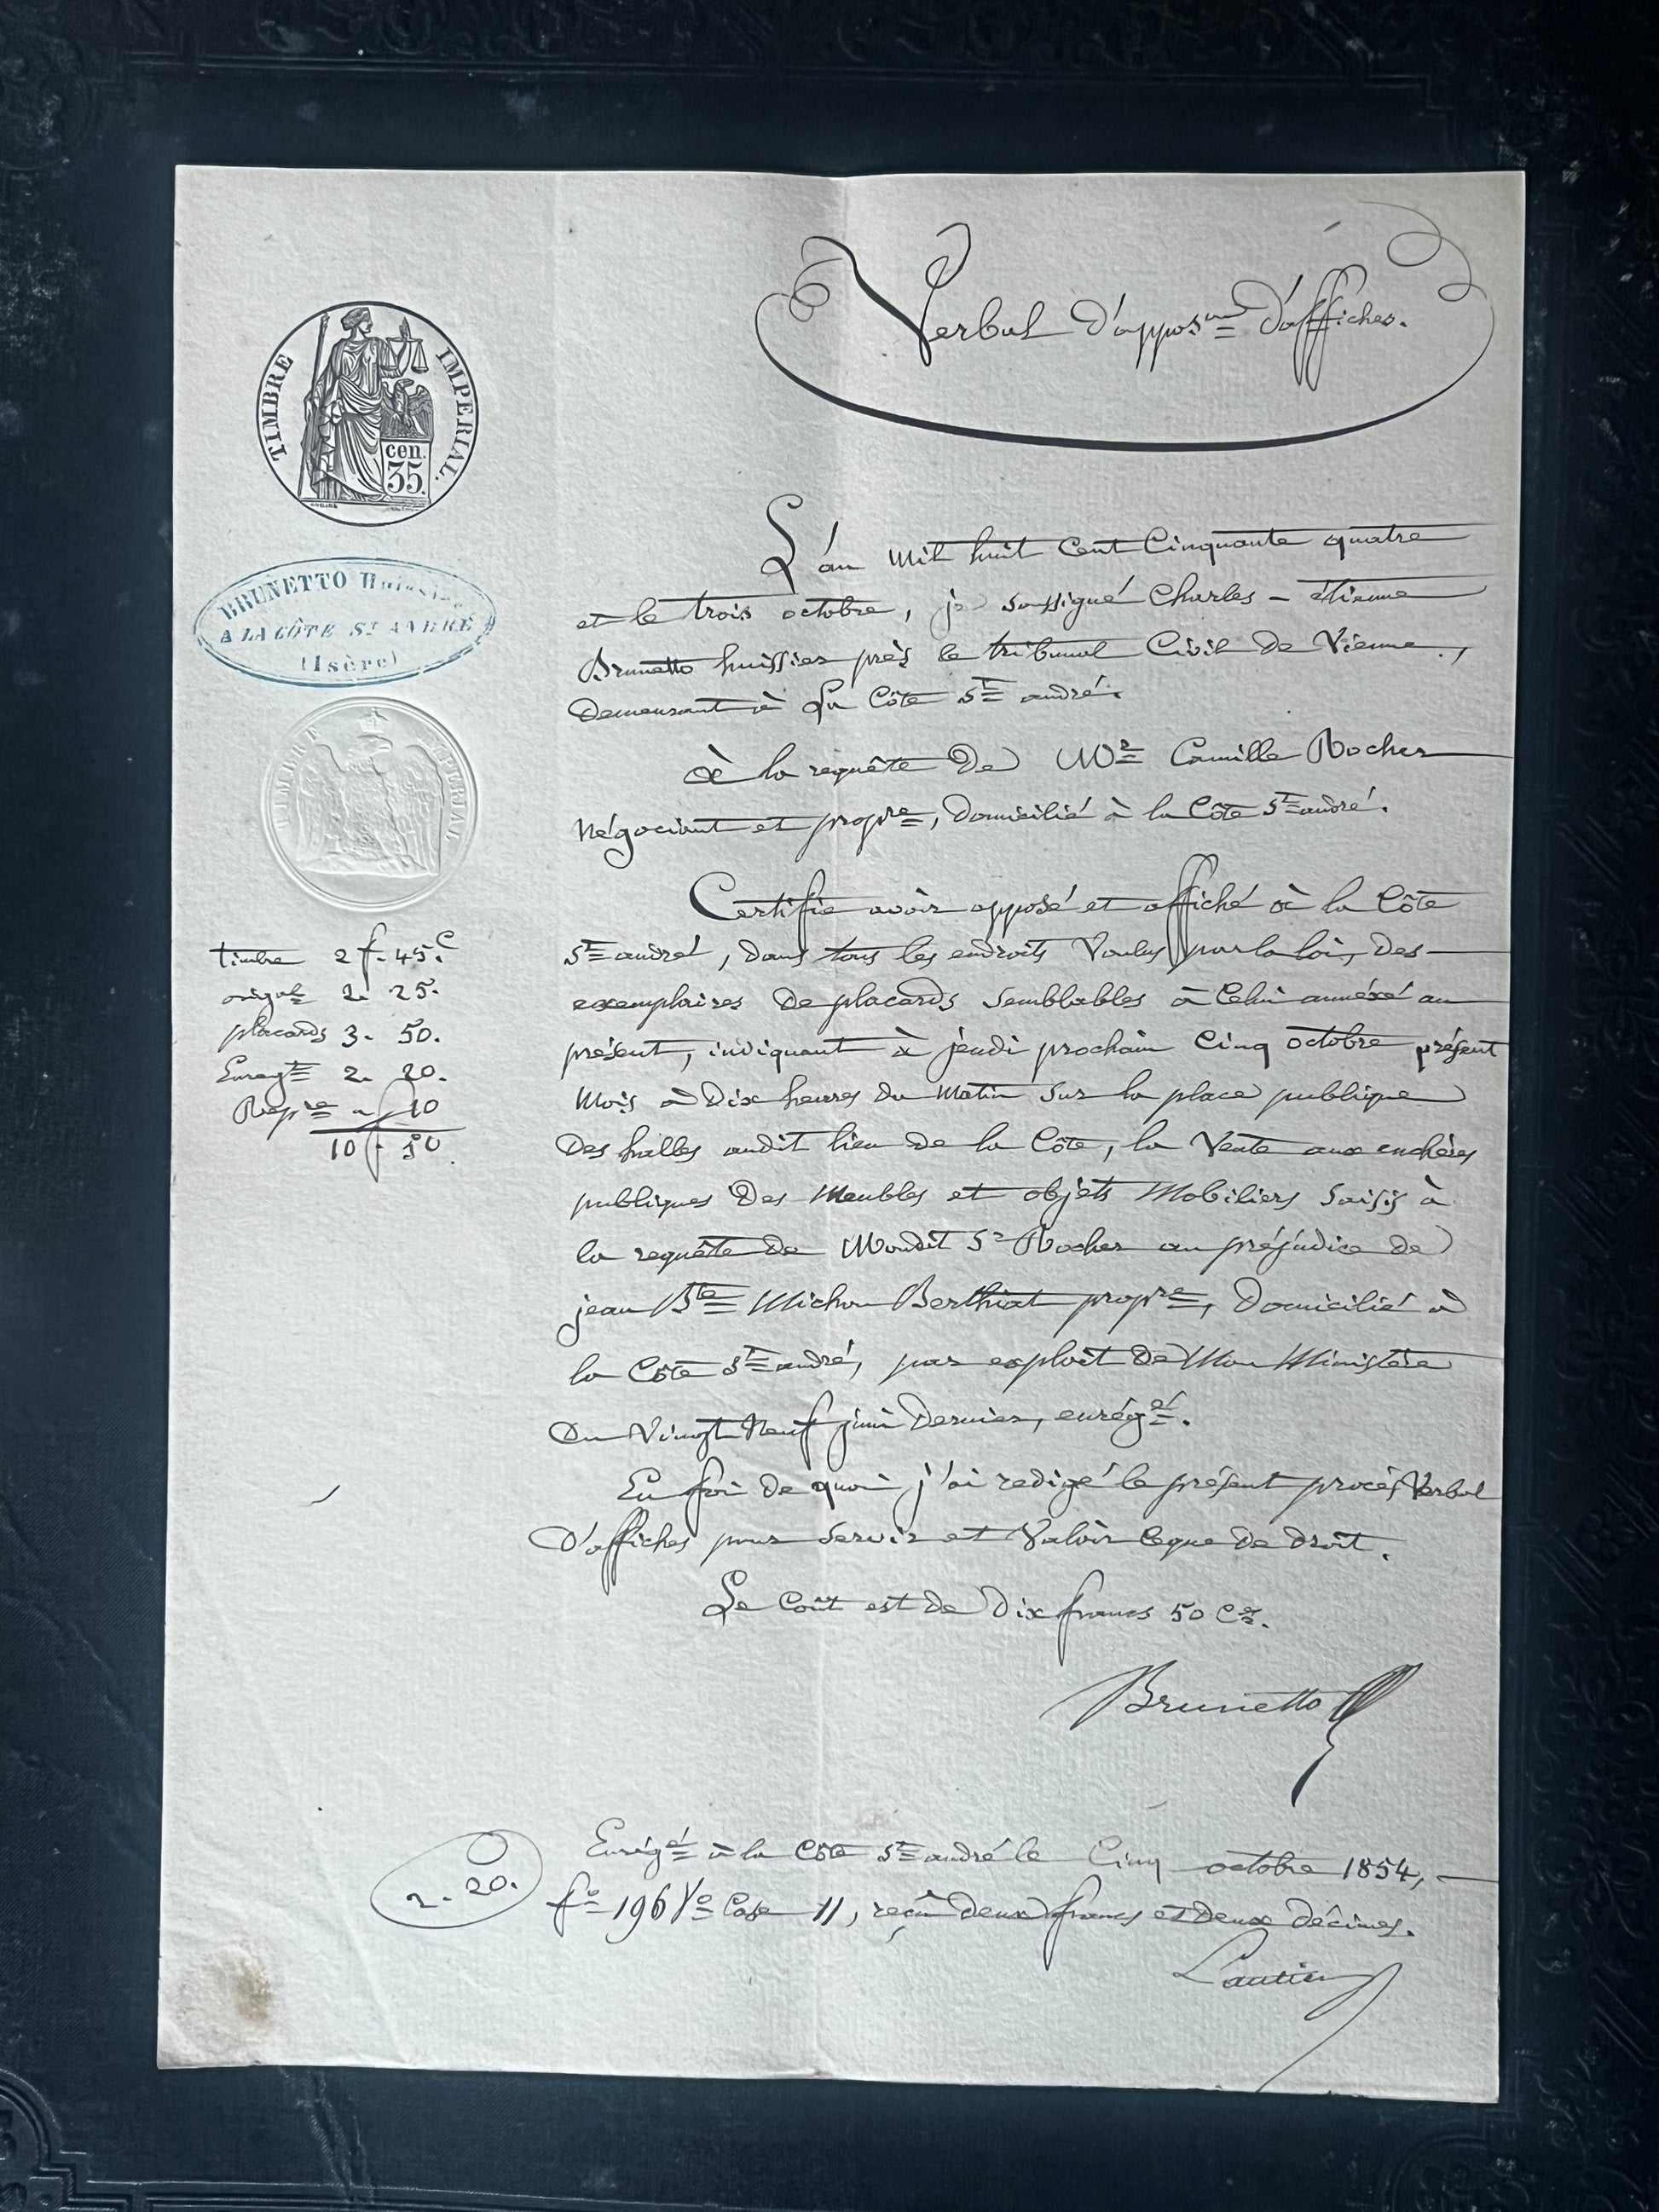 Verbal d'appos.on d'affiches.
TIMBRE IMPERIAL.
cen.
35.
BRUNETTO Huissier
A LA CÔTE ST ANDRÉ
(Isère)
TIMBRE IMPERIAL
timbre 2 f. 45.c
origal 2. 25.
placards 3. 50.
Enregt 2. 20.
Repre " 10
10 f. 50
L'an mil huit cent cinquante quatre
et le trois octobre, je soussigné Charles - étienne
Brunetto huissier près le tribunal Civil de Vienne,
demeurant à La Côte St andré.
à la requête de Mr Camille Rocher
négociant et propre, domicilié à la Côte St andré.
Certifie avoir apposé et affiché à la Côte
St andré, dans tous les endroits voulus par la loi, des
exemplaires de placards semblables à celui annéxé au
présent, indiquant à jeudi prochain cinq octobre présent
mois à dix heures du matin sur la place publique
des halles audit lieu de la Côte, la vente aux enchères
publiques des meubles et objets mobiliers saisis à
la requête de mondit Sr Rocher au préjudice de
jean Bte Michon Berthiat propre, domicilié à
la Côte St andré, par exploit de mon ministère
du vingt neuf juin dernier, enrégé.
En foi de quoi j'ai redigé le présent procès verbal
d'affiches pour servir et valoir ceque de droit.
Le coût est de dix francs 50 ces.
Brunetto
2. 20.
Enrégé à la Côte St andré le Cinq octobre 1854,
fo 196 Vo Case 11, reçu deux francs et deux décimes.